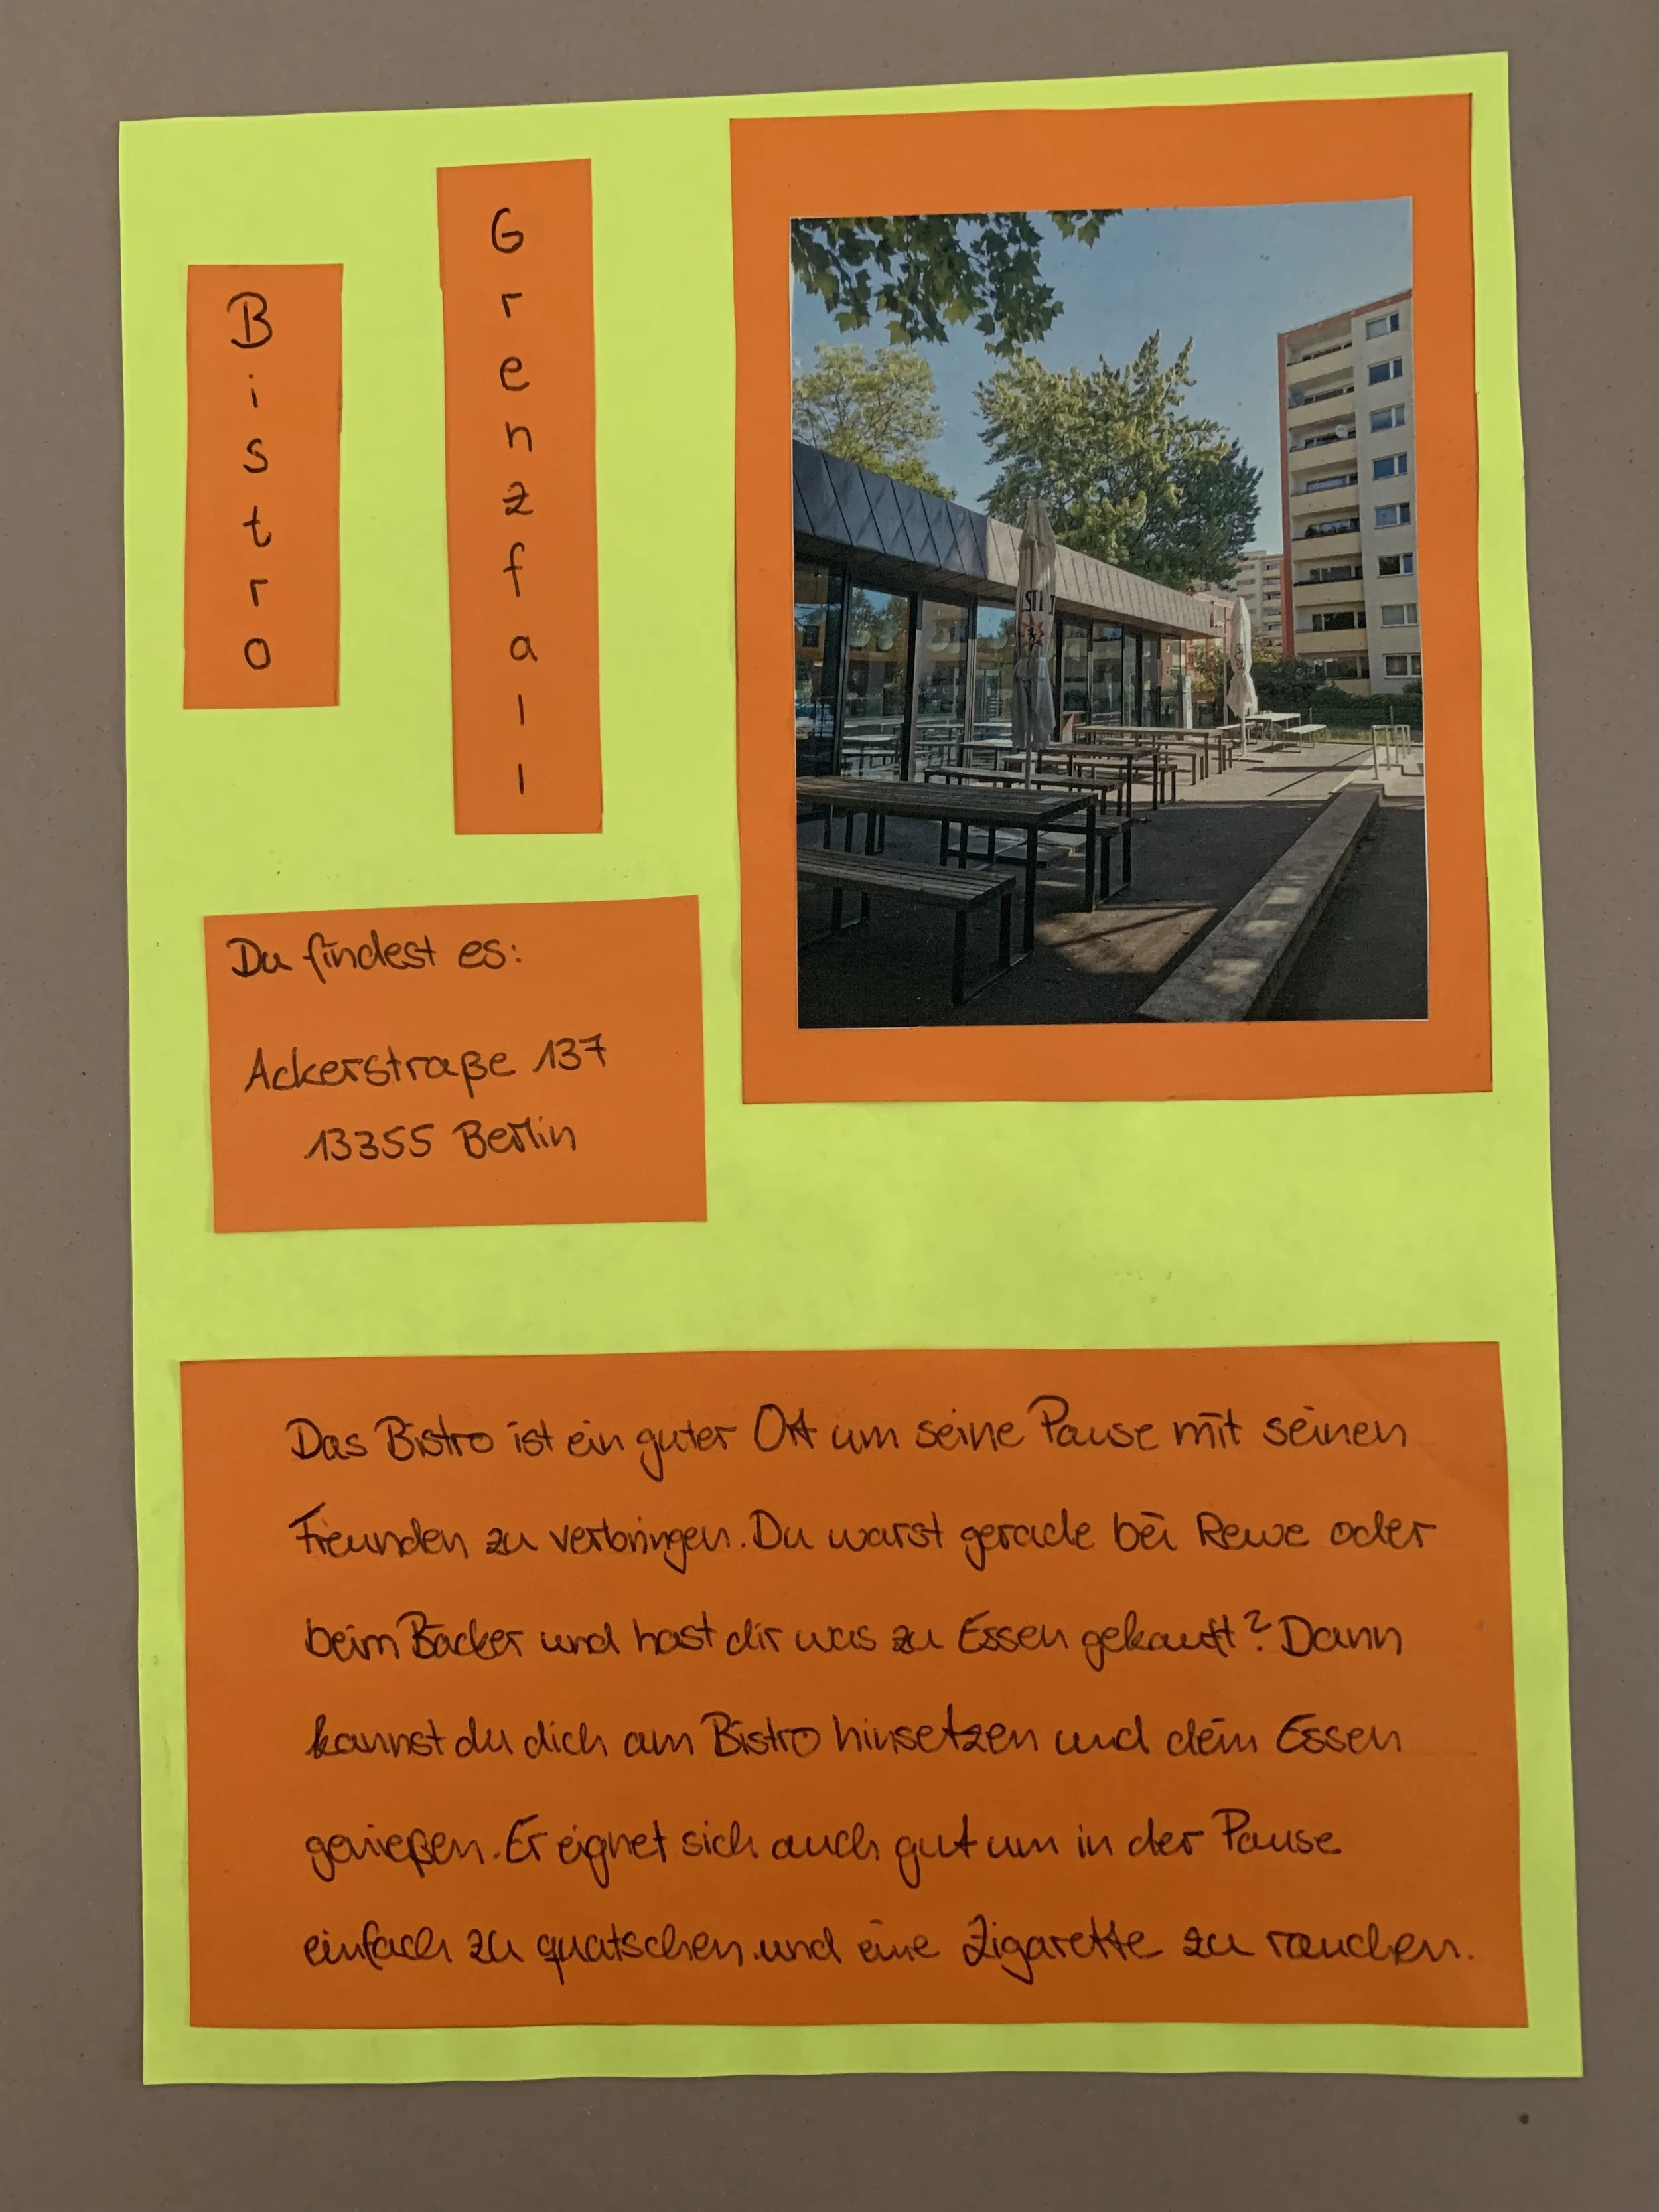 Bistro
Grenzfall
Du findest es:
Ackerstraße 137
13355 Berlin
Das Bistro ist ein guter Ort um seine Pause mit seinen
Freunden zu verbringen. Du warst gerade bei Rewe oder
beim Bäcker und hast dir was zu Essen gekauft? Dann
kannst du dich am Bistro hinsetzen und dein Essen
genießen. Er eignet sich auch gut um in der Pause
einfach zu quatschen und eine Zigarette zu rauchen.